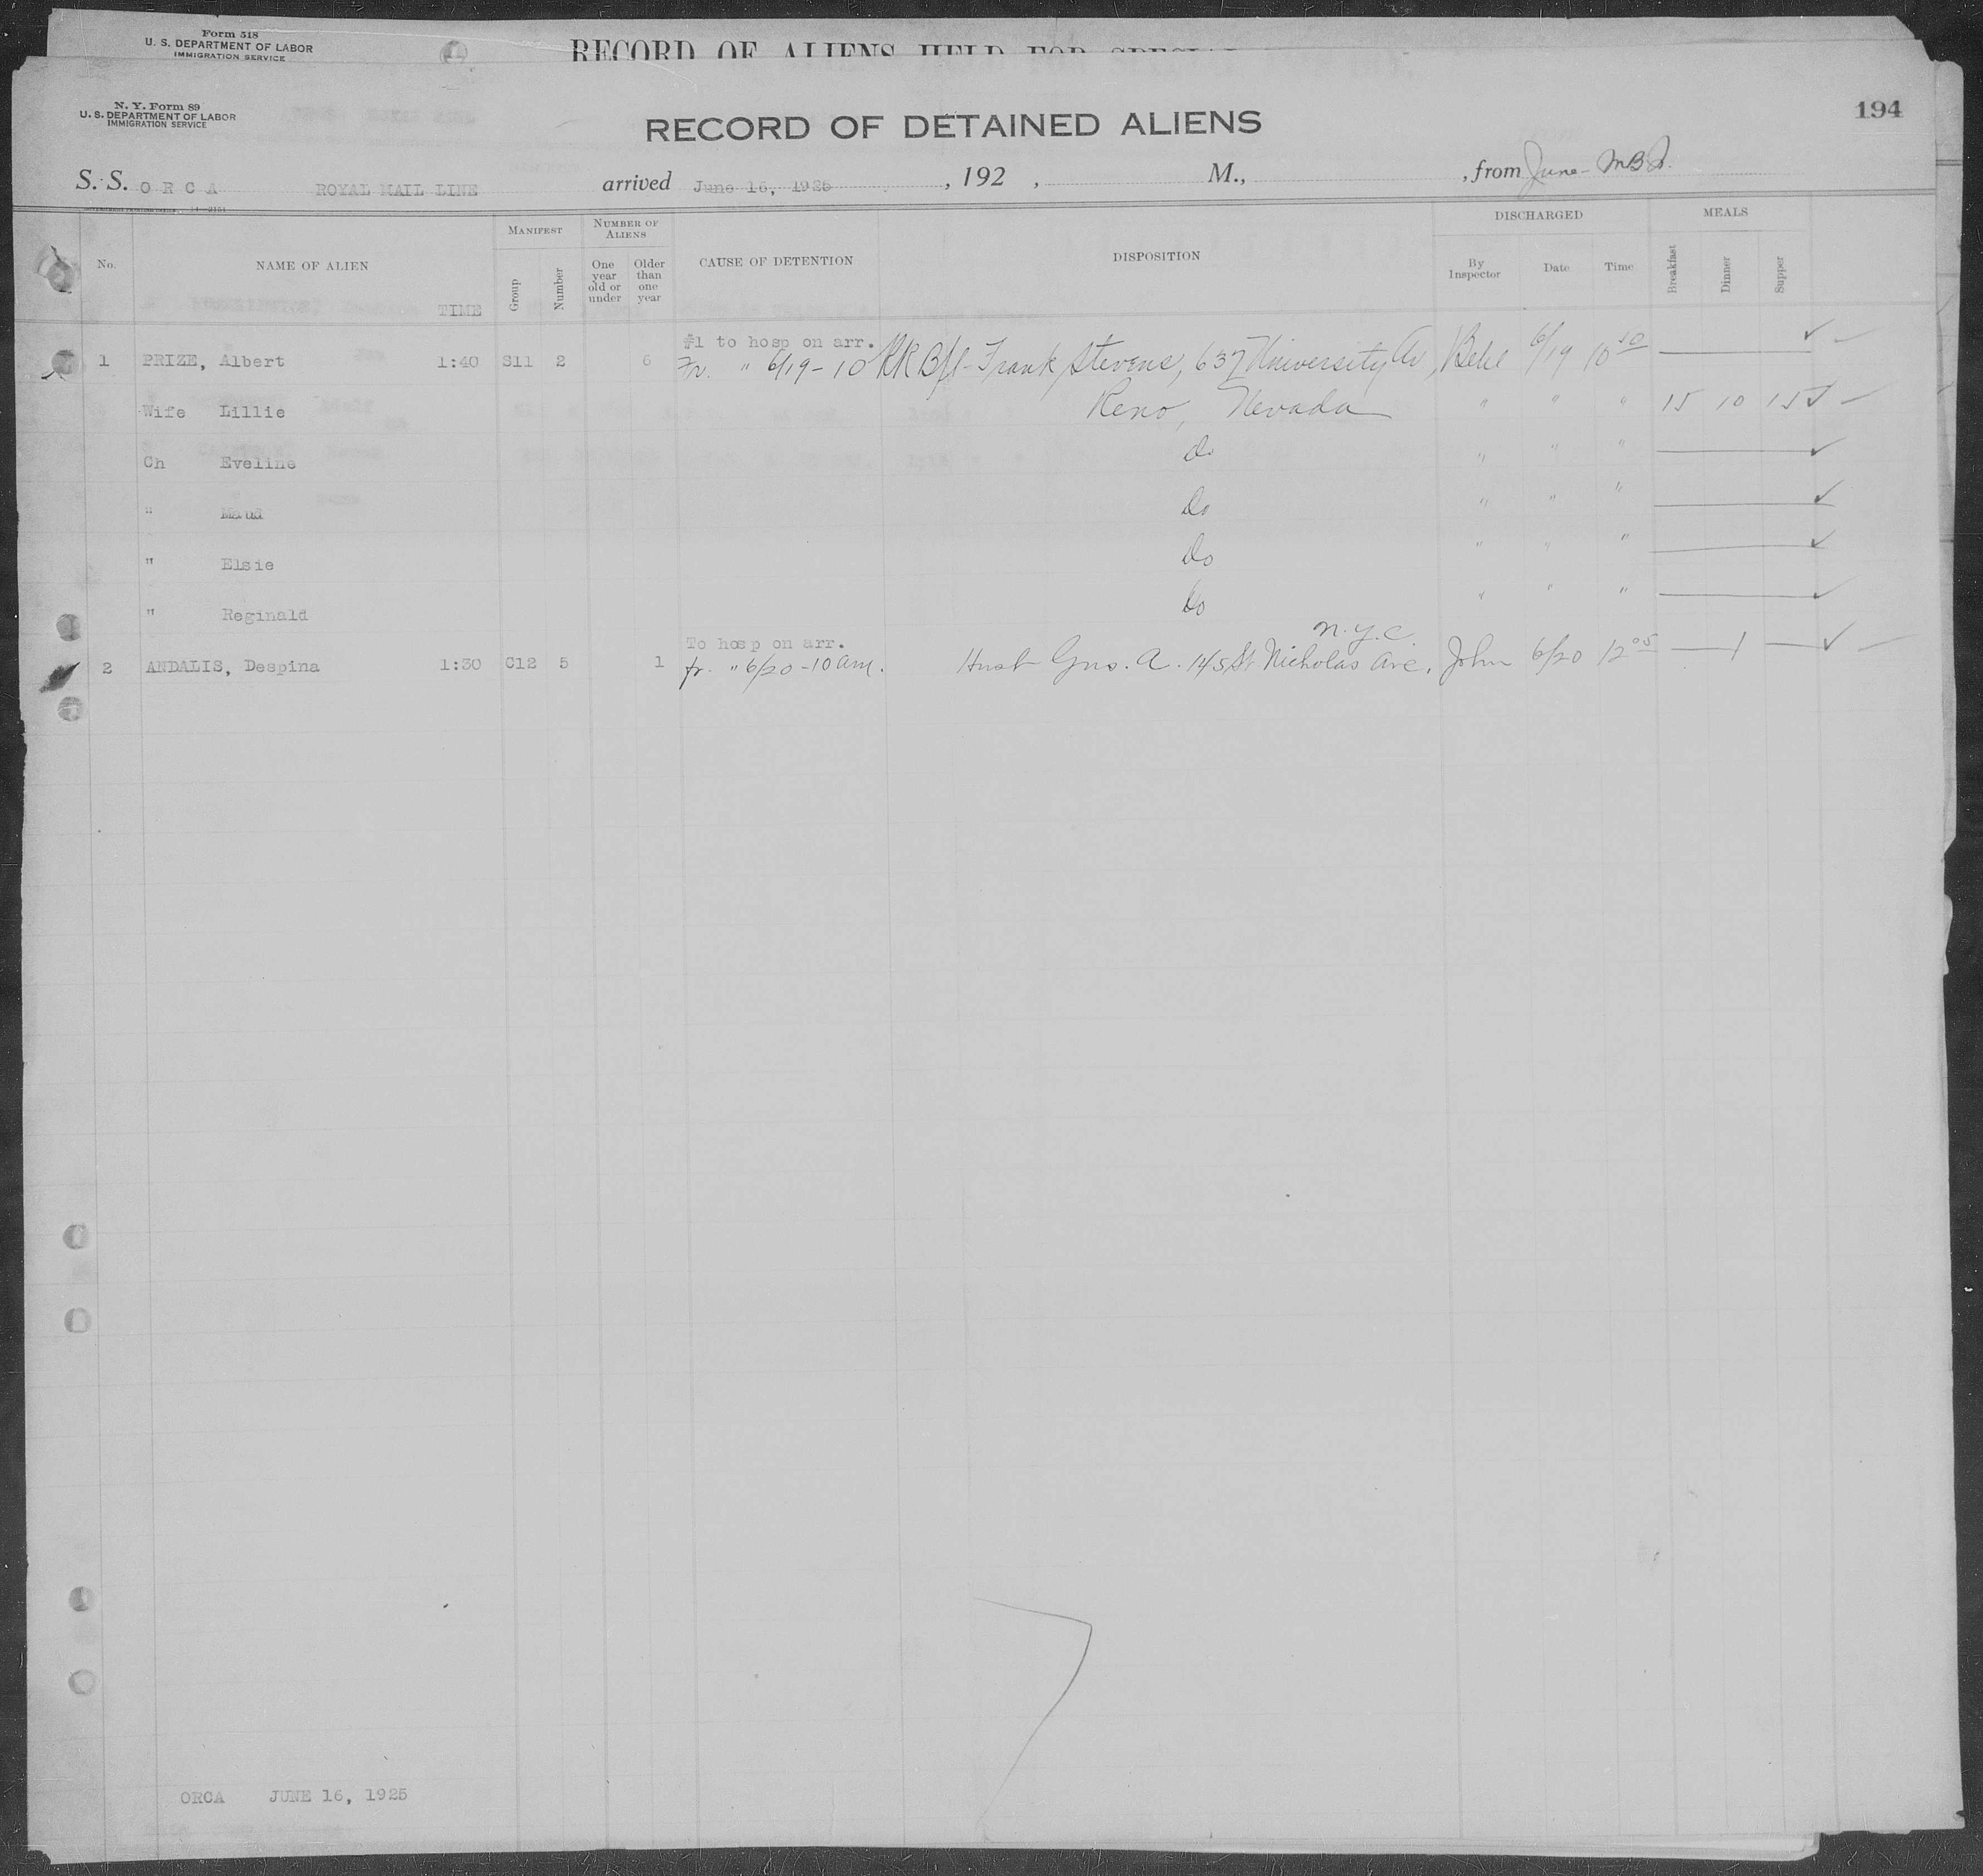 Form 518
U. S. DEPARTMENT OF LABOR
IMMIGRATION SERVICE
RECORD OF ALIENS HELD FOR SPECIAL
N. Y. Form 89
U. S. DEPARTMENT OF LABOR
IMMIGRATION SERVICE
194
RECORD OF DETAINED ALIENS
S. S. O R C A ROYAL MAIL LINE arrived June 16, 1925 , 192 , M., , from June-
No. NAME OF ALIEN TIME MANIFEST Group Number NUMBER OF ALIENS One year old or under Older than one year CAUSE OF DETENTION DISPOSITION DISCHARGED By Inspector Date Time MEALS Breakfast Dinner Supper
#1 to hosp on arr.
1 PRIZE, Albert 1:40 S11 2 6 Fr. " 6/19-10 RR Bfl-Frank Stevens, 637 University Av, 6/19 10
Wife Lillie Reno, Nevada " " " 15 10 15 ✓
Ch Eveline Do " " " ✓
" Maud Do " " " ✓
" Elsie Do " " " ✓
" Reginald Do " " " ✓
To hosp on arr. N.Y.C.
2 ANDALIS, Despina 1:30 C12 5 1 fr. " 6/20-10 am. Husb Gus. A. 145 St Nicholas Ave. John 6/20 12 05 1 ✓
ORCA JUNE 16, 1925